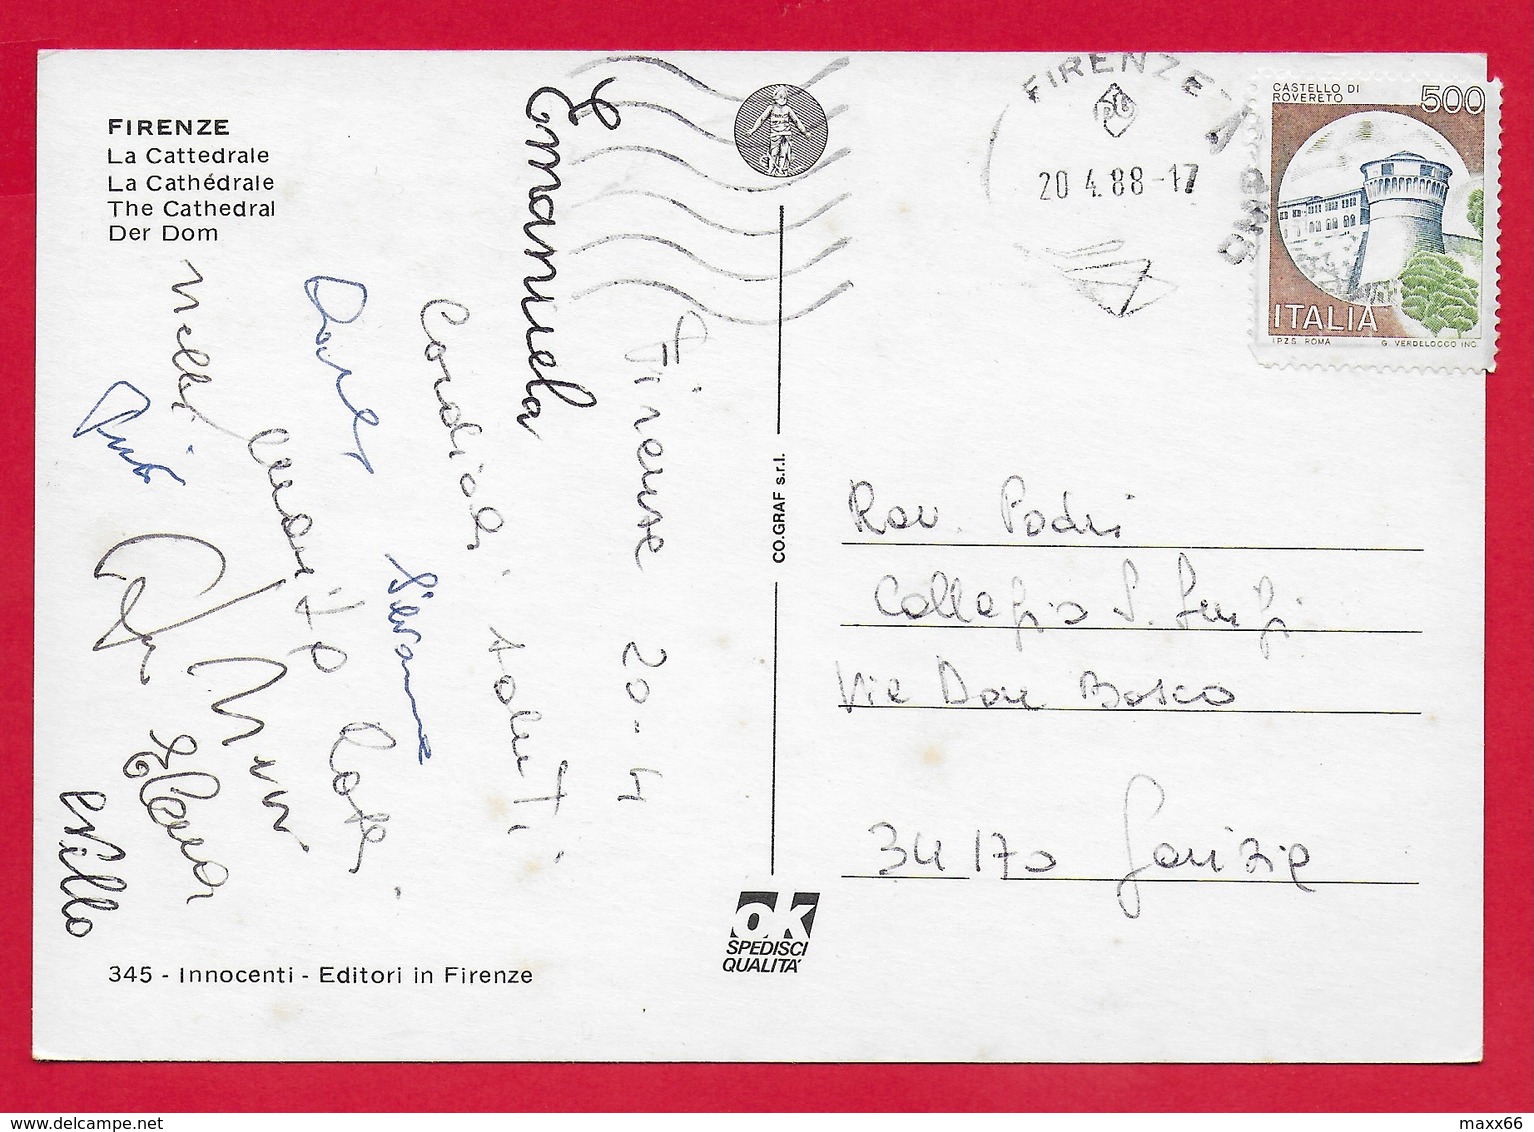 FIRENZE
La Cattedrale
La Cathédrale
The Cathedral
Der Dom
FIRENZE
20.4.88-17
CASTELLO DI
ROVERETO
500
ITALIA
I.P.Z.S. ROMA
G. VERDELOCCO INC.
Firenze 20-4
Cordiali saluti
Emanuela
Silvana
Nillo
CO.GRAF s.r.l.
Rev. Padri
Collegio S. Luigi
Via Don Bosco
34170 Gorizia
ok
SPEDISCI
QUALITA'
345 - Innocenti - Editori in Firenze
delcampe.net
maxx66